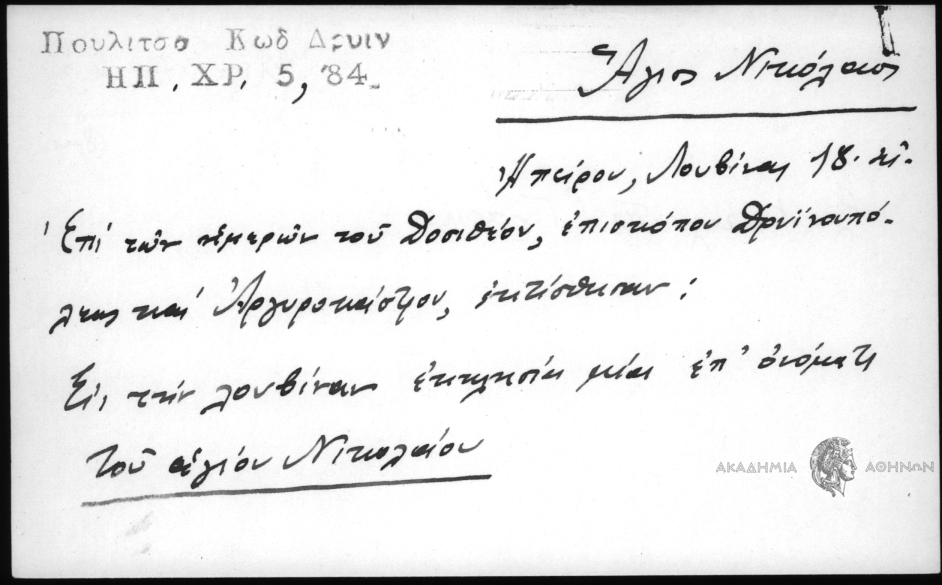 Πουλιτσα Κωδ Δρυιν
ΗΠ. ΧΡ. 5, '84.
Ἅγιος Νικόλαος
Ἠπείρου, Λουβίνας 18. αἰ.
Ἐπί τῶν ἡμερῶν τοῦ Δοσιθέου, ἐπισκόπου Δρυϊνουπό-
λεως καί Ἀργυροκάστρου, ἐκτίσθησαν:
Εἰς τήν Λουβίναν ἐκκλησία μία ἐπ' ὀνόματι
τοῦ ἁγίου Νικολαίου
ΑΚΑΔΗΜΙΑ ΑΘΗΝΩΝ